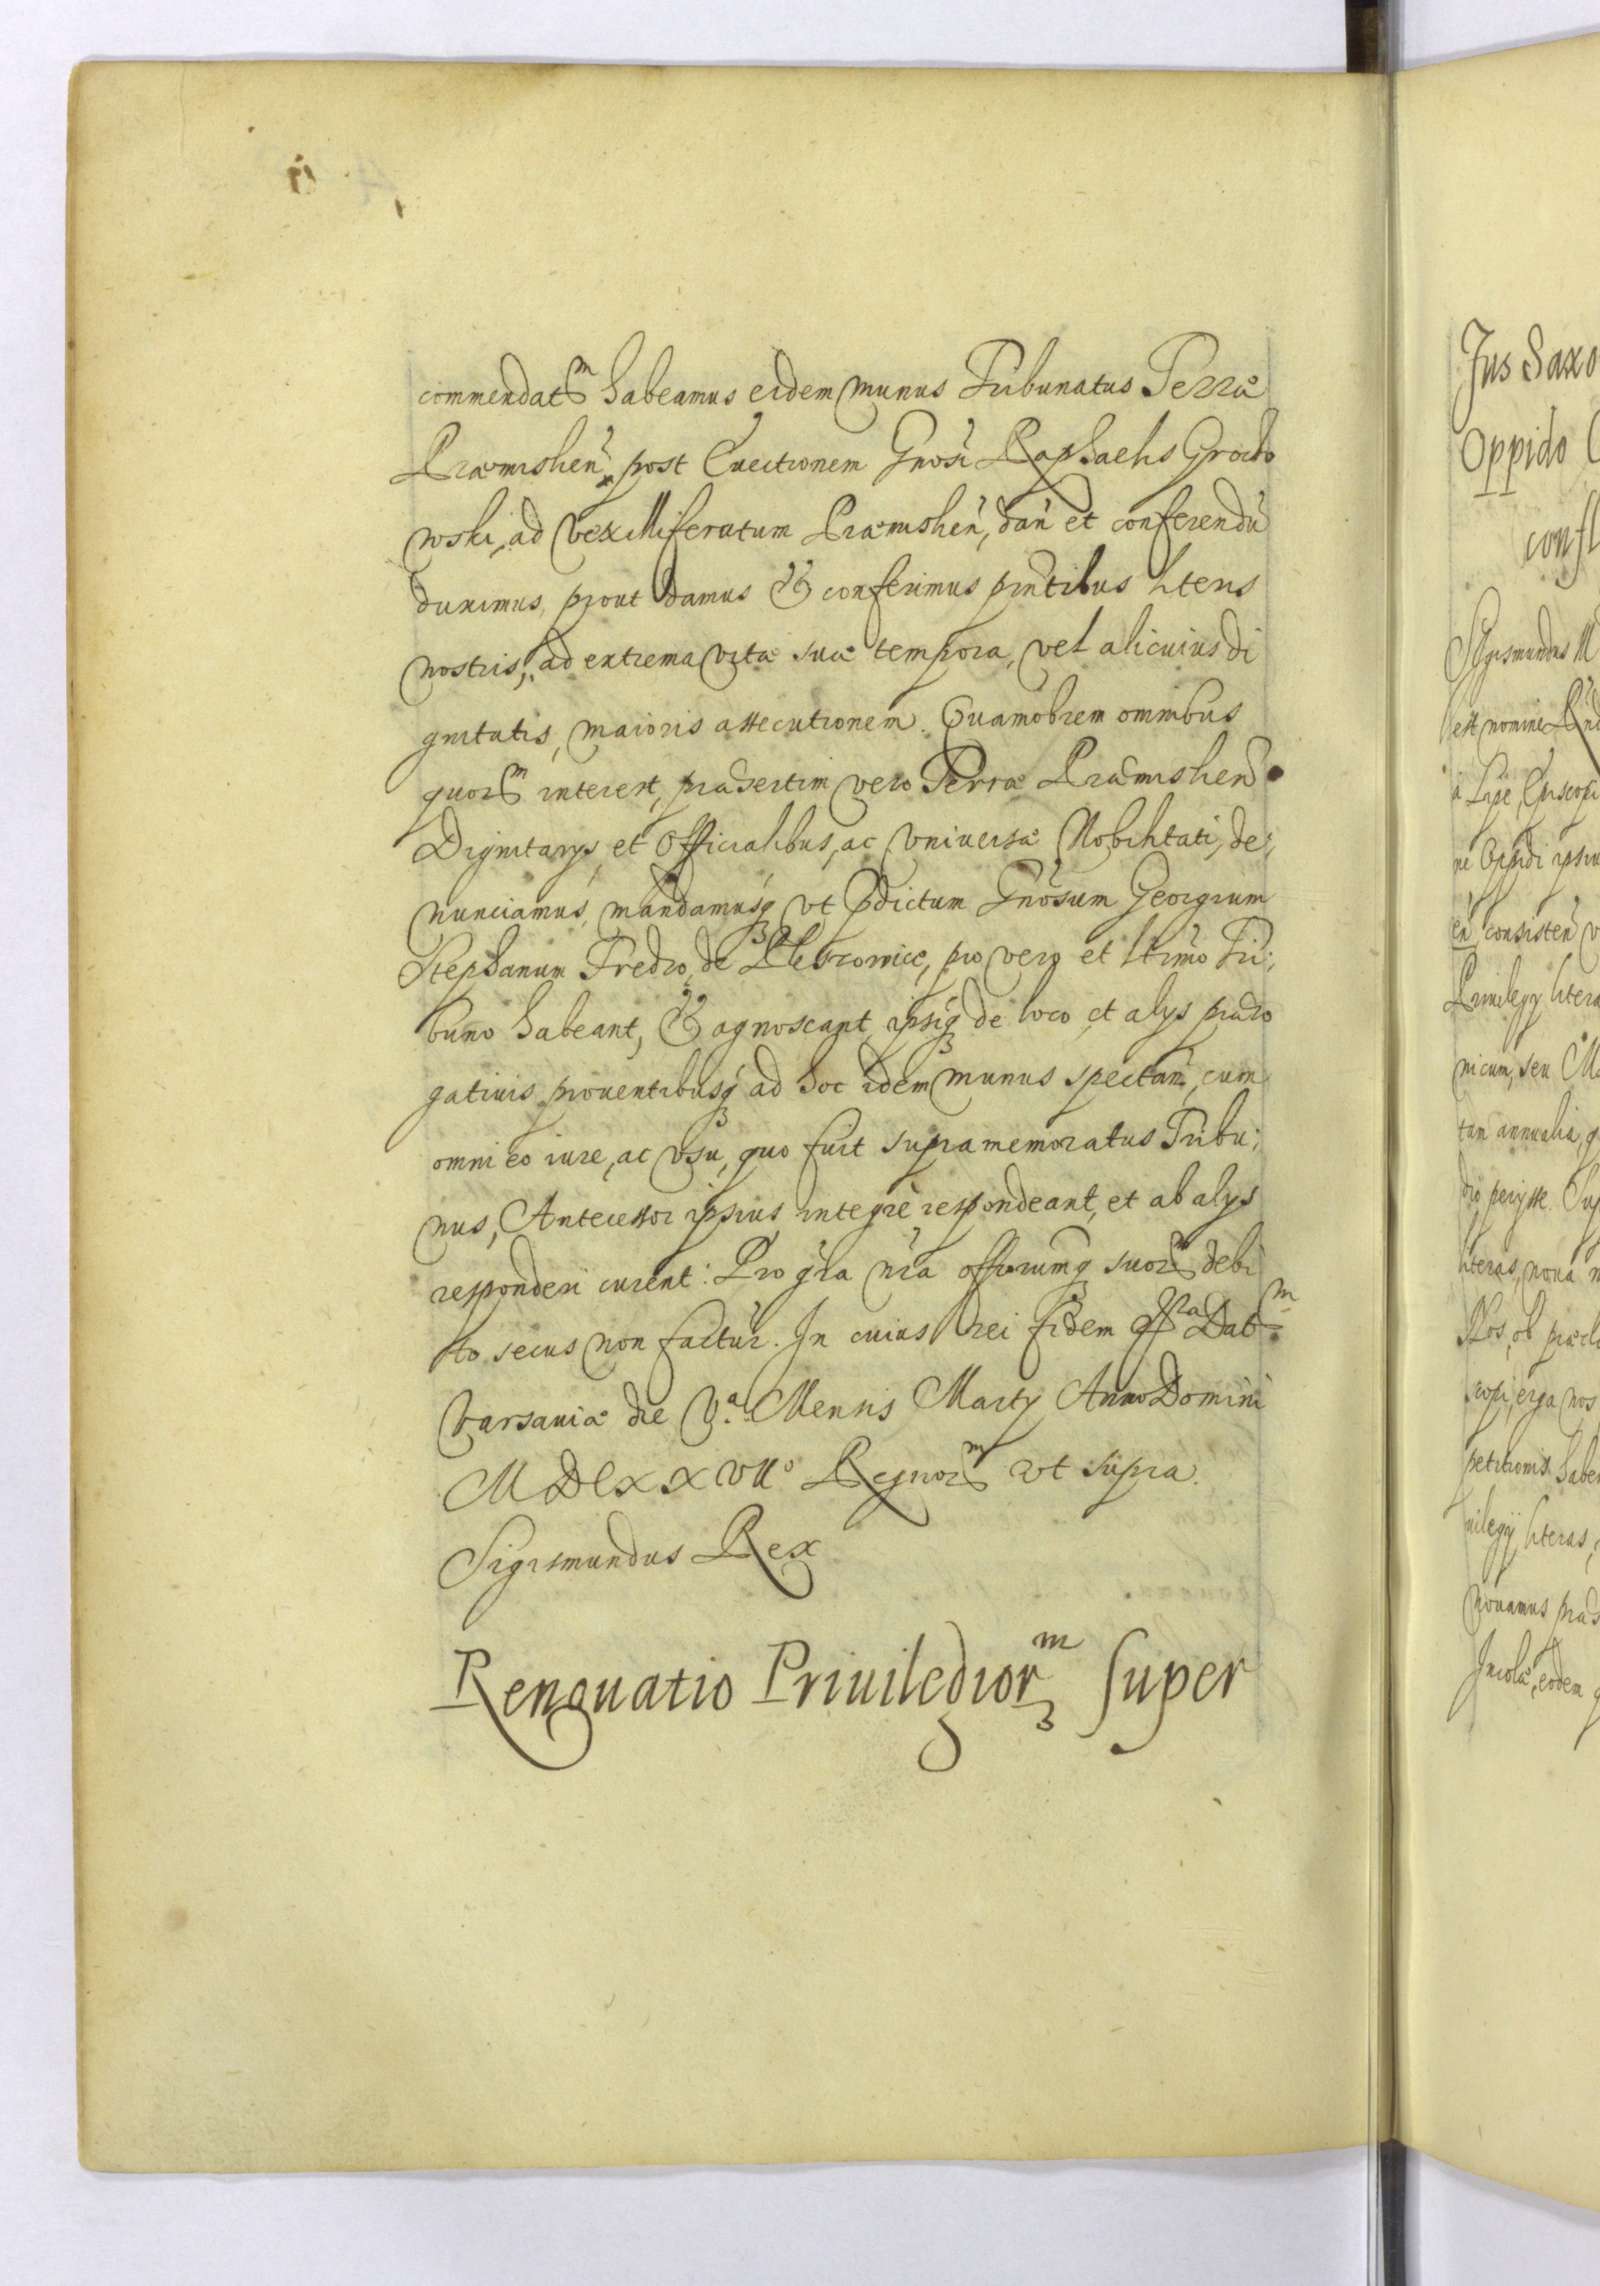 commendatm habeamus eidem munus Tribunatus Terræ
Præmislien̄, post Euectionem Gnosi Raphaelis Grocho
wski, ad Vexilliferatum Præmislien̄, dan̄ et conferendū
duximus, prout damus & conferimus pn̄tibus literis
nostris, ad extrema vitæ suæ tempora, vel alicuius di
gnitatis, maioris assecutionem. Quamobrem omnibus
quorm interest, præsertim vero Terræ Præmislien̄
Dignitarys, et Officialibus, ac vniuersæ Nobilitati, de;
nunciamus, mandamusq3 vt p̄dictum Gn̄osum Georgium
Stephanum Fredro, de Pleszowice, pro vero et ltimo Tri;
buno habeant, & agnoscant, ipsiq3 de loco, et alys præro
gatiuis prouentibusq3 ad hoc idem munus spectan̄, cum
omni eo iure, ac vsu, quo fuit supramemoratus Tribu;
nus, Antecessor ipsius integrè respondeant, et ab alys
responderi curent: Pro gr̄a nr̄a officiorumq3 suorm debi
to secus non facturi. In cuius rei fidem Datm
Varsauiæ die V.a Mensis Marty Anno Domini
MDCXXVIIo Regnorm vt supra.
Sigismundus Rex
Renouatio Priuiledior3m super
Jus Saxo
Oppido
confl
Sigismundus
est nomine
à Lipe, Episcopi
ne Oppidi ipsiu
en̄ consisten̄ v
Priuilegy litera
nicum, seu Ma
tam annualia, q
dio perysse. Sup
literas, noua n
Nos, ob præcla
scopi, erga nos
petitionis haben
uilegij literas,
nouamus præs
Incolæ, eodem q